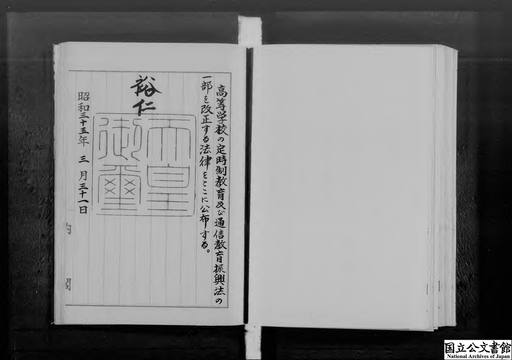 高等学校の定時制教育及び通信教育振興法の
一部を改正する法律をここに公布する。
裕仁
天皇
御璽
昭和三十五年三月三十一日
内閣
国立公文書館
National Archives of Japan